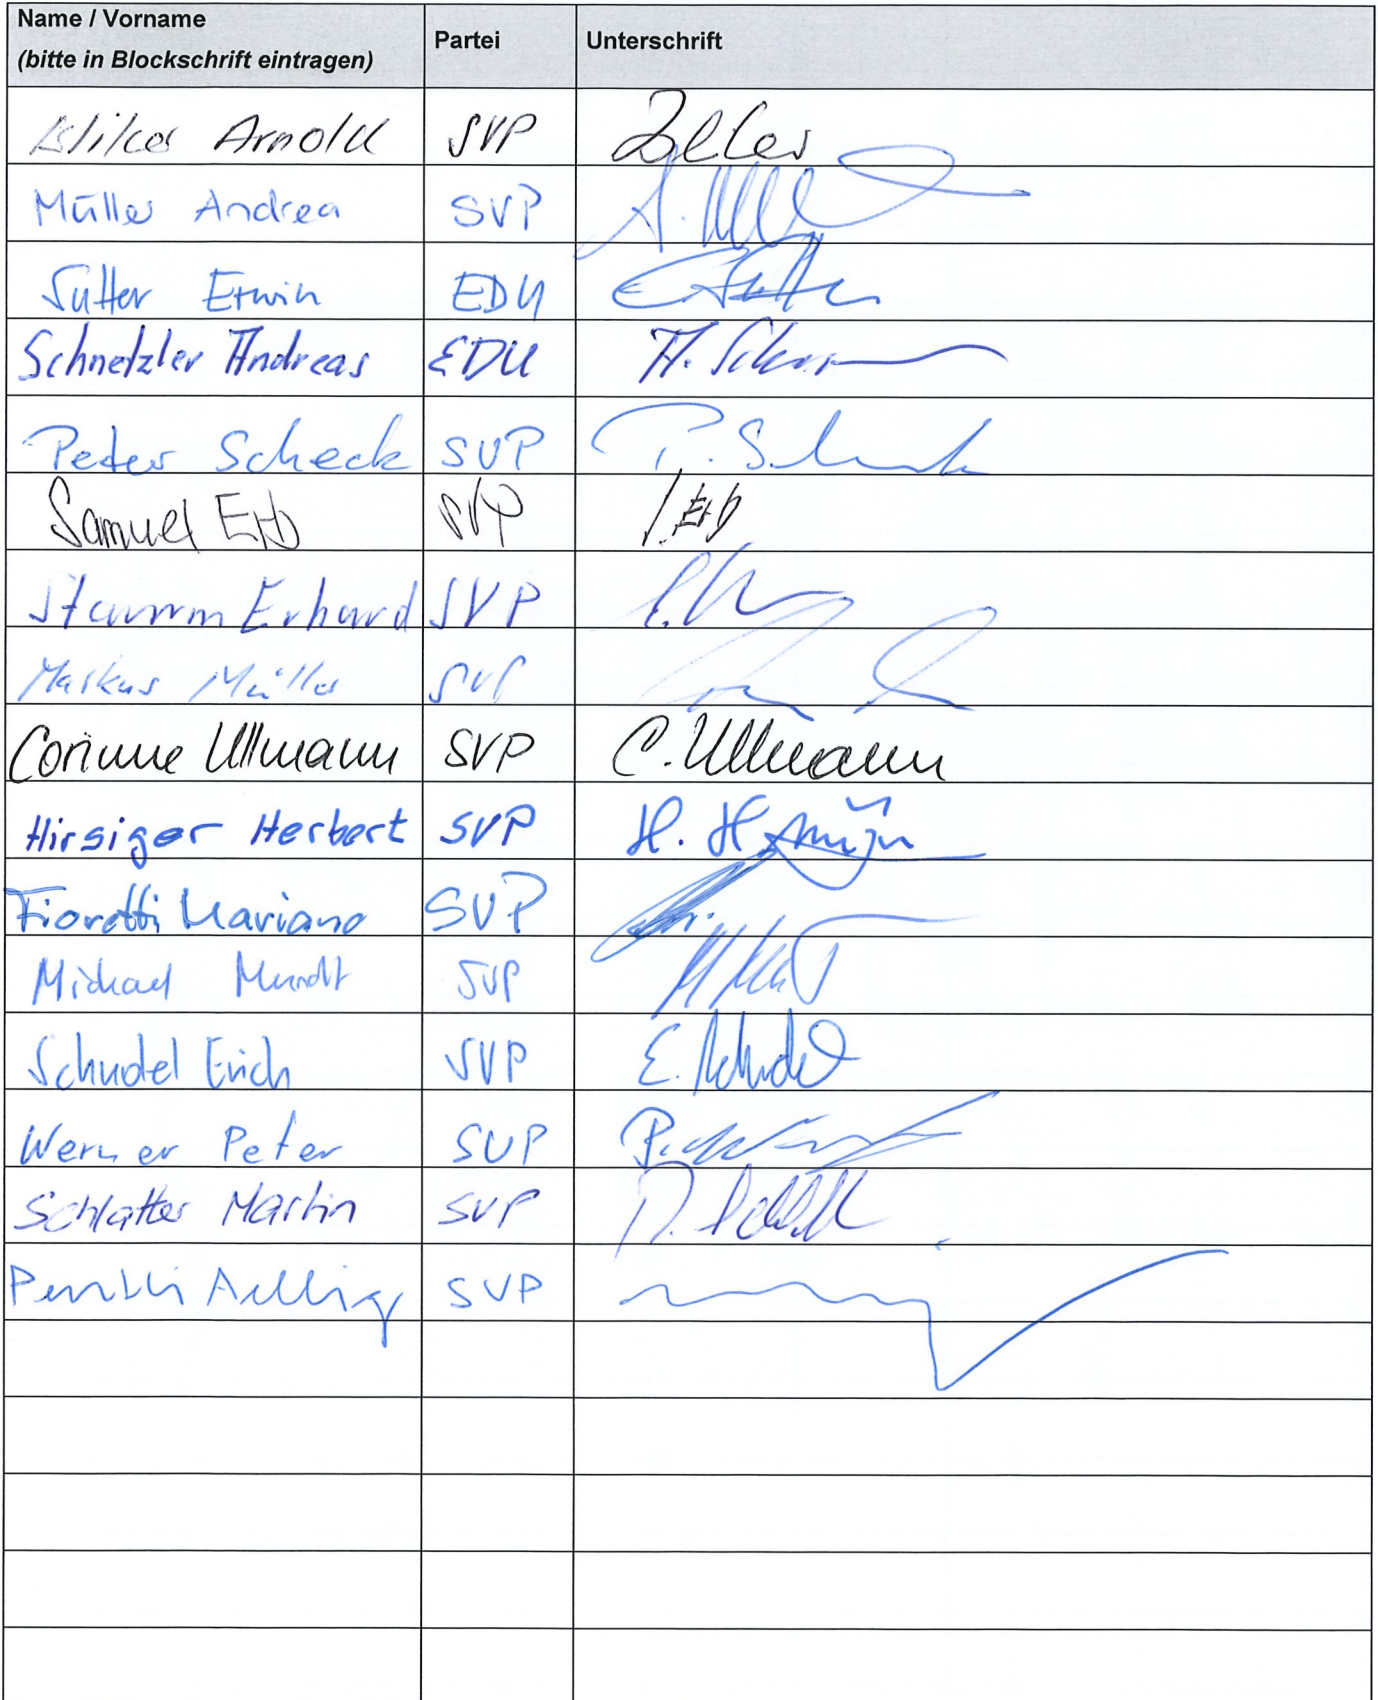 Name / Vorname Partei Unterschrift
(bitte in Blockschrift eintragen)
Arnold SVP
Müller Andrea SVP A.
Sutter Erwin EDU E. Sutter
Schnetzler Andreas EDU A.
Peter Scheck SVP P. Scheck
Samuel Erb SVP S. Erb
Stamm Erhard SVP
Markus Müller SVP
Corinne Ullmann SVP C. Ullmann
Hirsiger Herbert SVP H.
Fioretti Mariano SVP
Michael Mundt SVP
Schudel Erich SVP E. Schudel
Werner Peter SVP
Schlatter Martin SVP
Pentti Aellig SVP